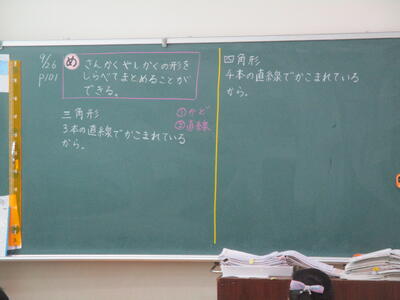 9/26
p101
め
さんかくやしかくの形を
しらべてまとめることが
できる。
三角形
①かど
②直線
3本の直線でかこまれている
から。
四角形
4本の直線でかこまれている
から。